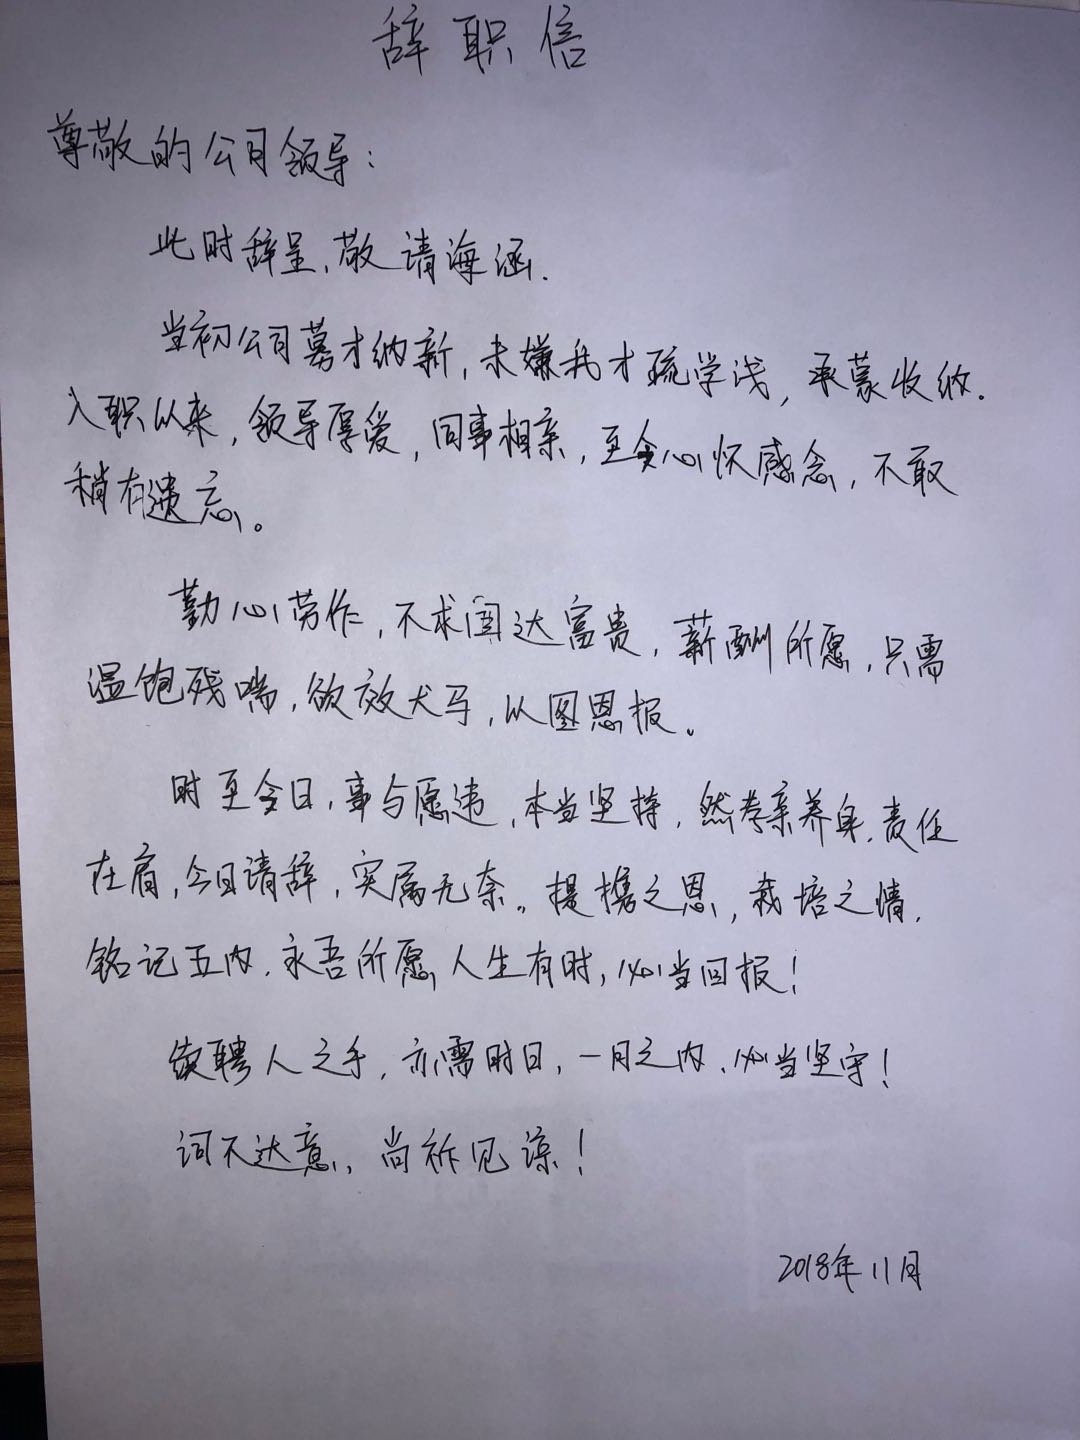 辞职信
尊敬的公司领导：
此时辞呈，敬请海涵.
当初公司募才纳新，未嫌我才疏学浅，承蒙收纳.
入职以来，领导厚爱，同事相亲，至今心怀感念，不敢
稍有遗忘。
勤心劳作，不求闻达富贵，薪酬所愿，只需
温饱残喘，欲效犬马，以图恩报。
时至今日，事与愿违，本当坚持，然孝亲养身，责任
在肩，今日请辞，实属无奈。提携之恩，栽培之情，
铭记五内，永吾所愿，人生有时，必当回报！
续聘人之手，亦需时日，一月之内，必当坚守！
词不达意，尚祈见谅！
2018年11月